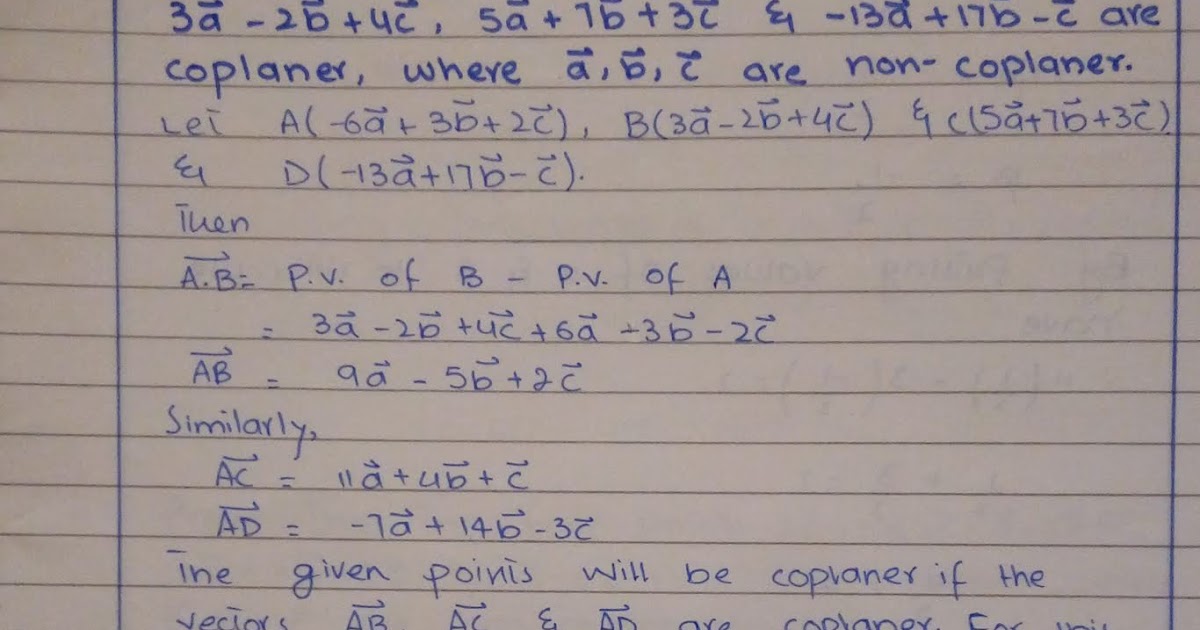 3a⃗ - 2b⃗ + 4c⃗, 5a⃗ + 7b⃗ + 3c⃗ & -13a⃗ + 17b⃗ - c⃗ are
coplaner, where a⃗, b⃗, c⃗ are non-coplaner.
Let A(-6a⃗ + 3b⃗ + 2c⃗), B(3a⃗ - 2b⃗ + 4c⃗) & C(5a⃗ + 7b⃗ + 3c⃗)
& D(-13a⃗ + 17b⃗ - c⃗).
Then
A.B⃗ = P.V. of B - P.V. of A
= 3a⃗ - 2b⃗ + 4c⃗ + 6a⃗ - 3b⃗ - 2c⃗
AB⃗ = 9a⃗ - 5b⃗ + 2c⃗
Similarly,
AC⃗ = 11a⃗ + 4b⃗ + c⃗
AD⃗ = -7a⃗ + 14b⃗ - 3c⃗
The given points will be coplaner if the
vectors AB⃗, AC⃗ & AD⃗ are coplaner. For this